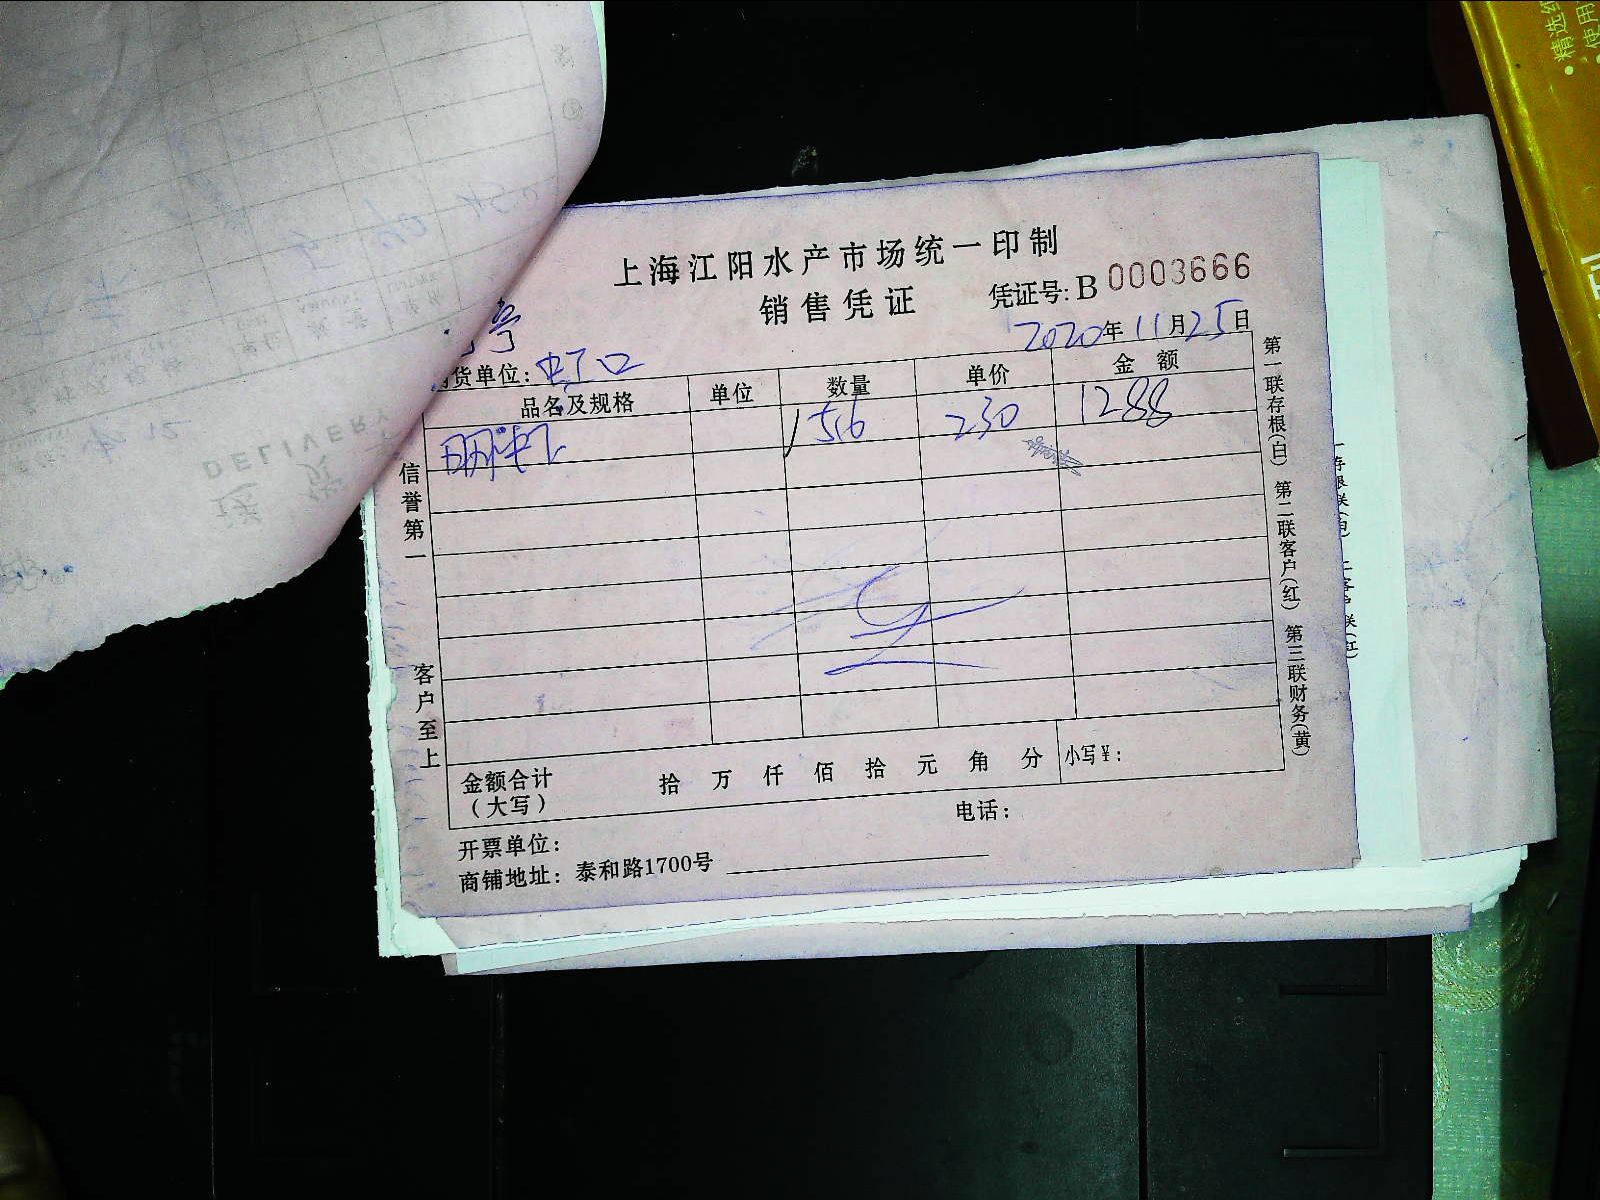 上海江阳水产市场统一印制
销售凭证
凭证号: B 0003666
2020年11月25日
货单位: 虹口
品名及规格 单位 数量 单价 金额
明虾 5.6 230 1288
信誉第一
客户至上
第一联存根(白) 第二联客户(红) 第三联财务(黄)
金额合计 拾 万 仟 佰 拾 元 角 分 小写¥:
(大写)
电话:
开票单位:
商铺地址: 泰和路1700号
DELIVERY
• 精选